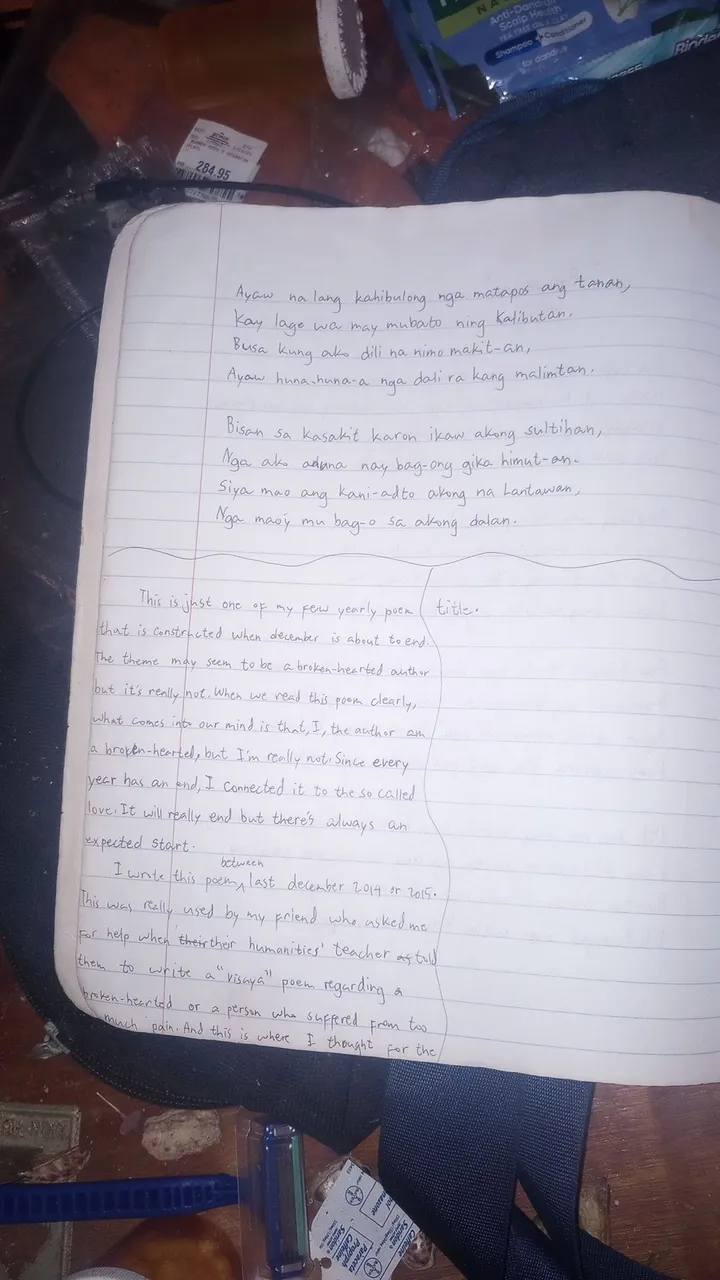 Anti-Dandruff
Scalp Health
Shampoo + Conditioner
for dandruff
284.95
Ayaw na lang kahibulong nga matapos ang tanan,
Kay lage wa may mubato ning Kalibutan.
Busa kung ako dili na nimo makit-an,
Ayaw huna-huna-a nga dali ra kang malimtan.
Bisan sa kasakit karon ikaw akong sultihan,
Nga ako aduna nay bag-ong gika himut-an.
Siya mao ang kani-adto akong na Lantawan,
Nga maoy mu bag-o sa akong dalan.
This is just one of my few yearly poem
that is constructed when december is about to end.
The theme may seem to be a broken-hearted author
but it's really not. When we read this poem clearly,
what comes into our mind is that, I, the author am
a broken-hearted, but I'm really not. Since every
year has an end, I connected it to the so called
love. It will really end but there's always an
expected start.
I wrote this poem, between last december 2014 or 2015.
This was really used by my friend who asked me
for help when their their humanities' teacher as told
them to write a "visaya" poem regarding a
broken-hearted or a person who suffered from too
much pain. And this is where I thought for the
title.